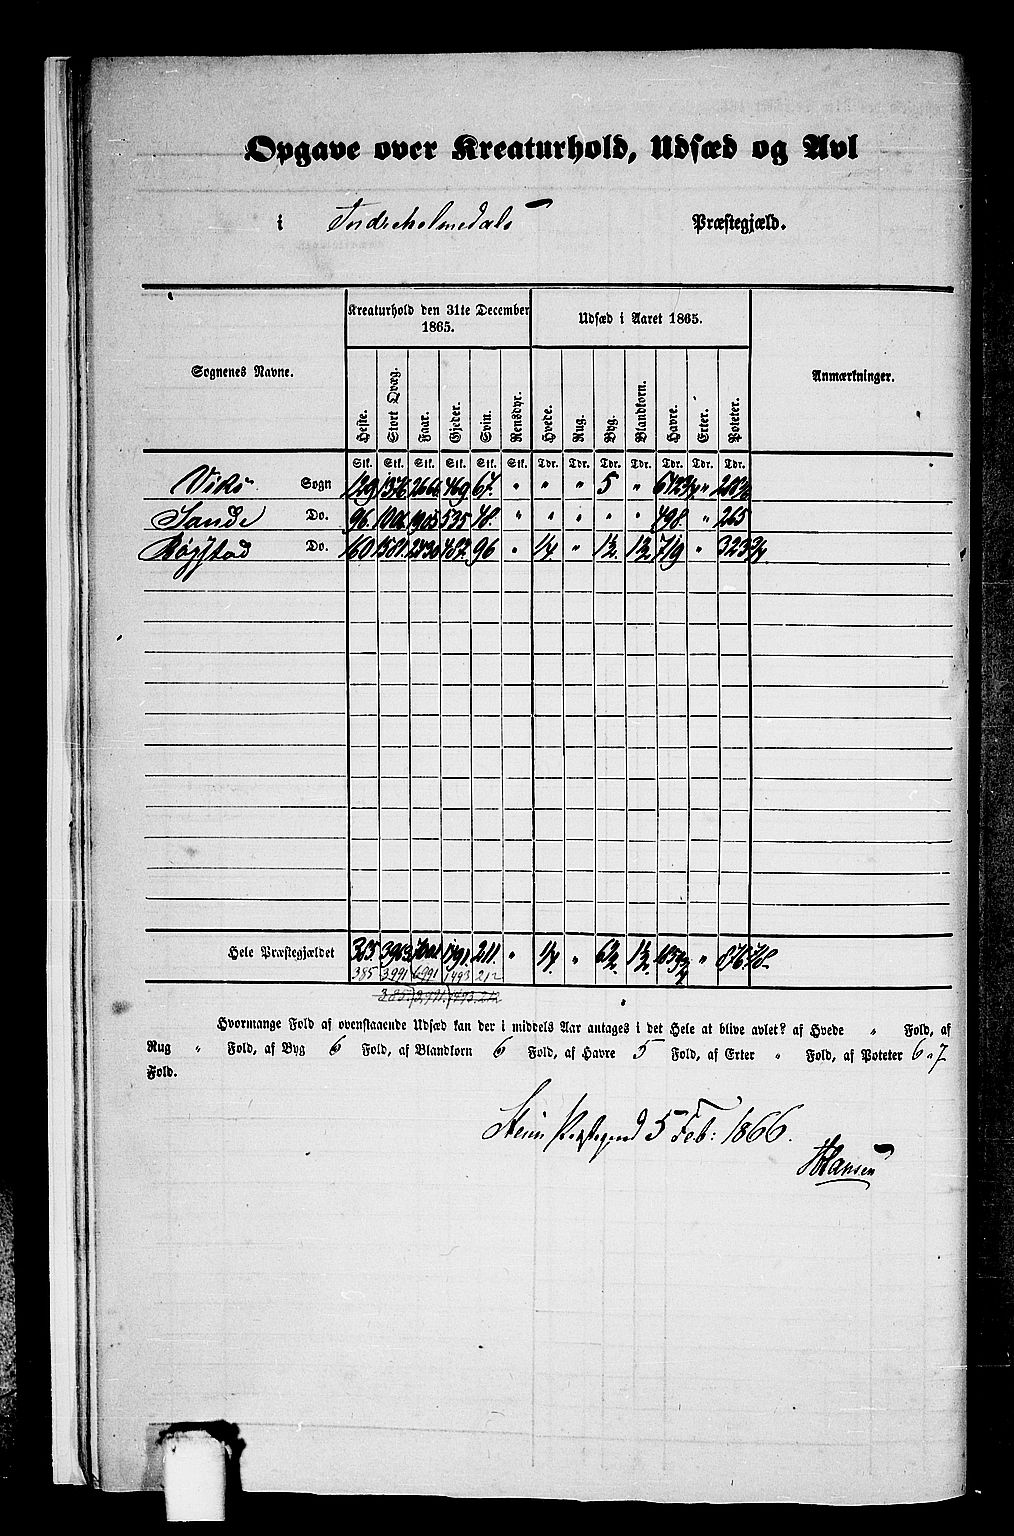 Opgave over Kreaturhold, Udsæd og Avl
i Indreholmedals Præstegjæld.
Sognenes Navne. Kreaturhold den 31te December 1865. Udsæd i Aaret 1865. Anmærkninger.
Heste. Stort Qvæg. Faar. Gjeder. Svin. Rensdyr. Hvede. Rug. Byg. Blandkorn. Havre. Erter. Poteter.
Stk. Stk. Stk. Stk. Stk. Stk. Tdr. Tdr. Tdr. Tdr. Tdr. Tdr. Tdr.
Viks Sogn 129 1376 2666 469 67. " " " 5 " "
Sande Do. 96. 1006 1905 535 48. " " " " " 498. " 265
Do. 160 1581. 2430 487. 96 " 1/4 " 1½. 1½ 719 " 323¾
Hele Præstegjældet 385. 3963. 1491. 211. " 1/4. " 6½. 1½. "
385 3991 6991 1493 212
385. 3991. 1493. 212
Hvormange Fold af ovenstaaende Udsæd kan der i middels Aar antages i det Hele at blive avlet? af Hvede " Fold, af
Rug " Fold, af Byg 6 Fold, af Blandkorn 6 Fold, af Havre 5 Fold, af Erter " Fold, af Poteter 6 a 7
Fold.
5 Feb: 1866.
Hansen